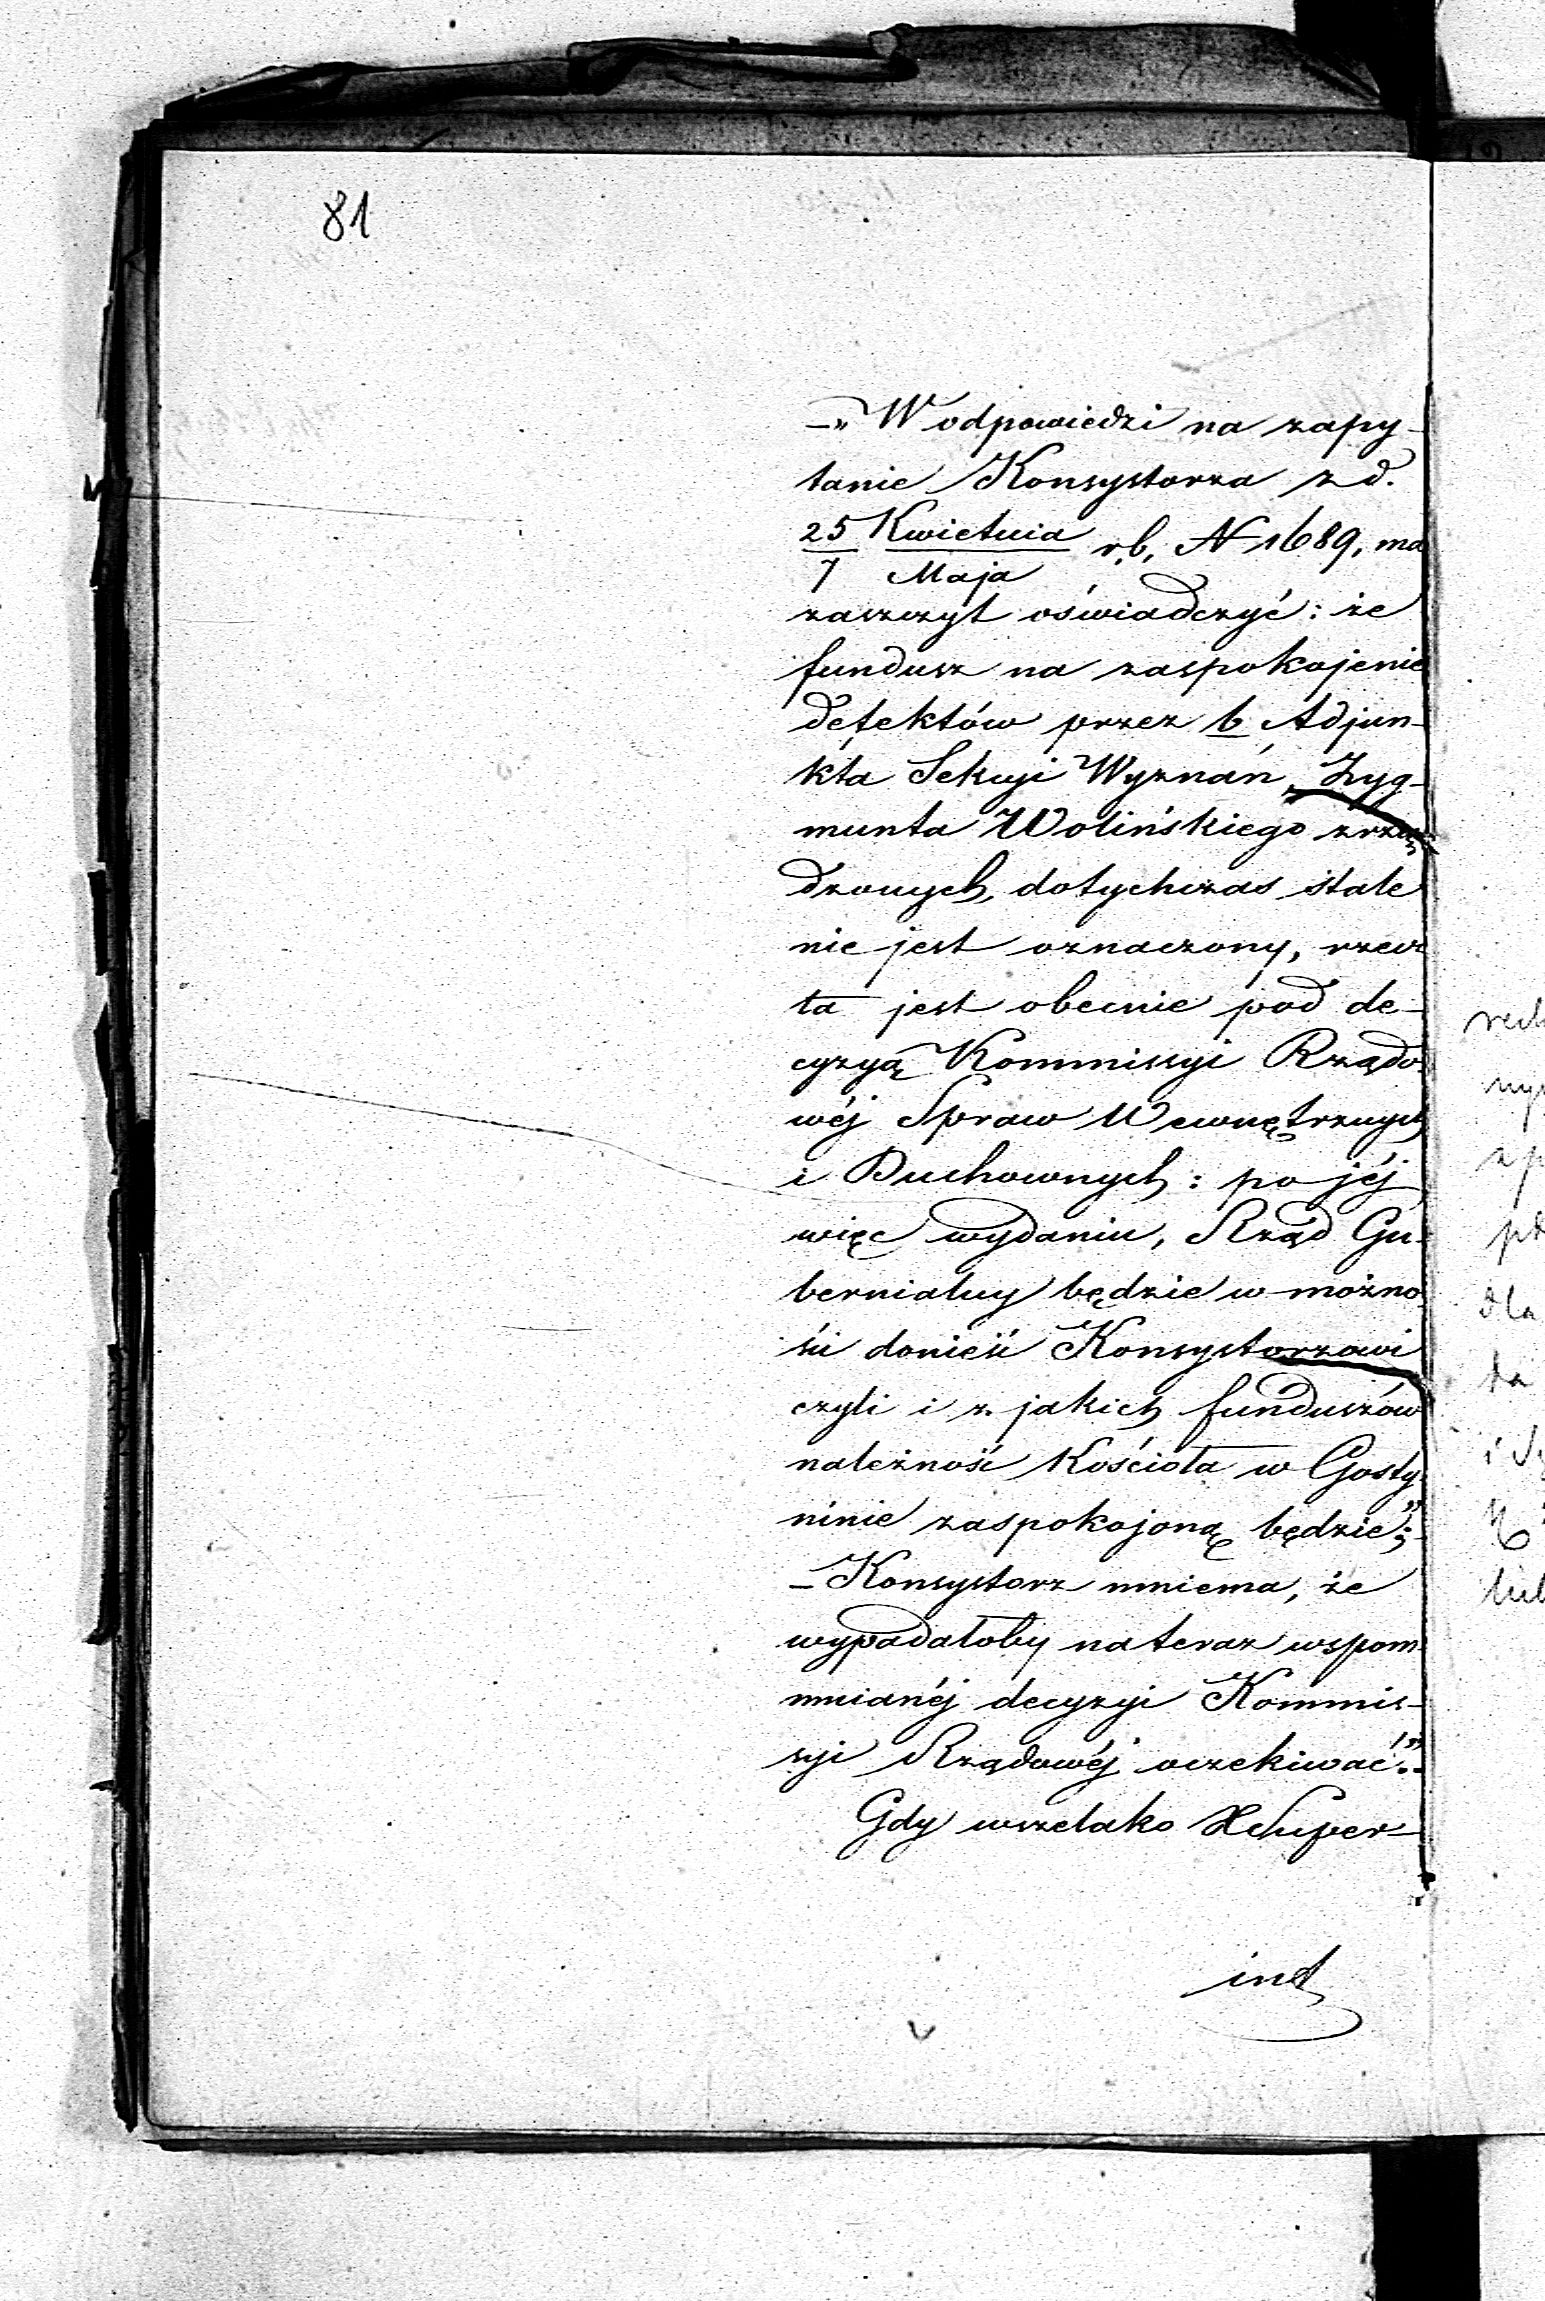 81
–„ W odpowiedzi na zapy-
tanie Konsystorza z d.
25 Kwietnia / 7 Maja r.b. N 1689, ma
zaszczyt oświadczyć: że
fundusz na zaspokojenie
defektów przez b Adjun-
kta Sekcyi Wyznań, Zyg-
munta Wolińskiego zrzą-
dzonych, dotychczas stale
nie jest oznaczony, rzecz
ta jest obecnie pod de-
cyzyą Kommissyi Rządo-
wéj Spraw Wewnętrznych
i Duchownych: po jéj
więc wydaniu, Rząd Gu-
bernialny będzie w możno-
ści donieść Konsystorzowi
czyli i z jakich funduszów
należność Kościoła w Gosty-
ninie zaspokojoną będzie;”
– Konsystorz mniema, że
wypadałoby na teraz wspom-
mnianéj decyzyi Kommis-
syi Rządowéj oczekiwać.”
Gdy wszelako X Super-